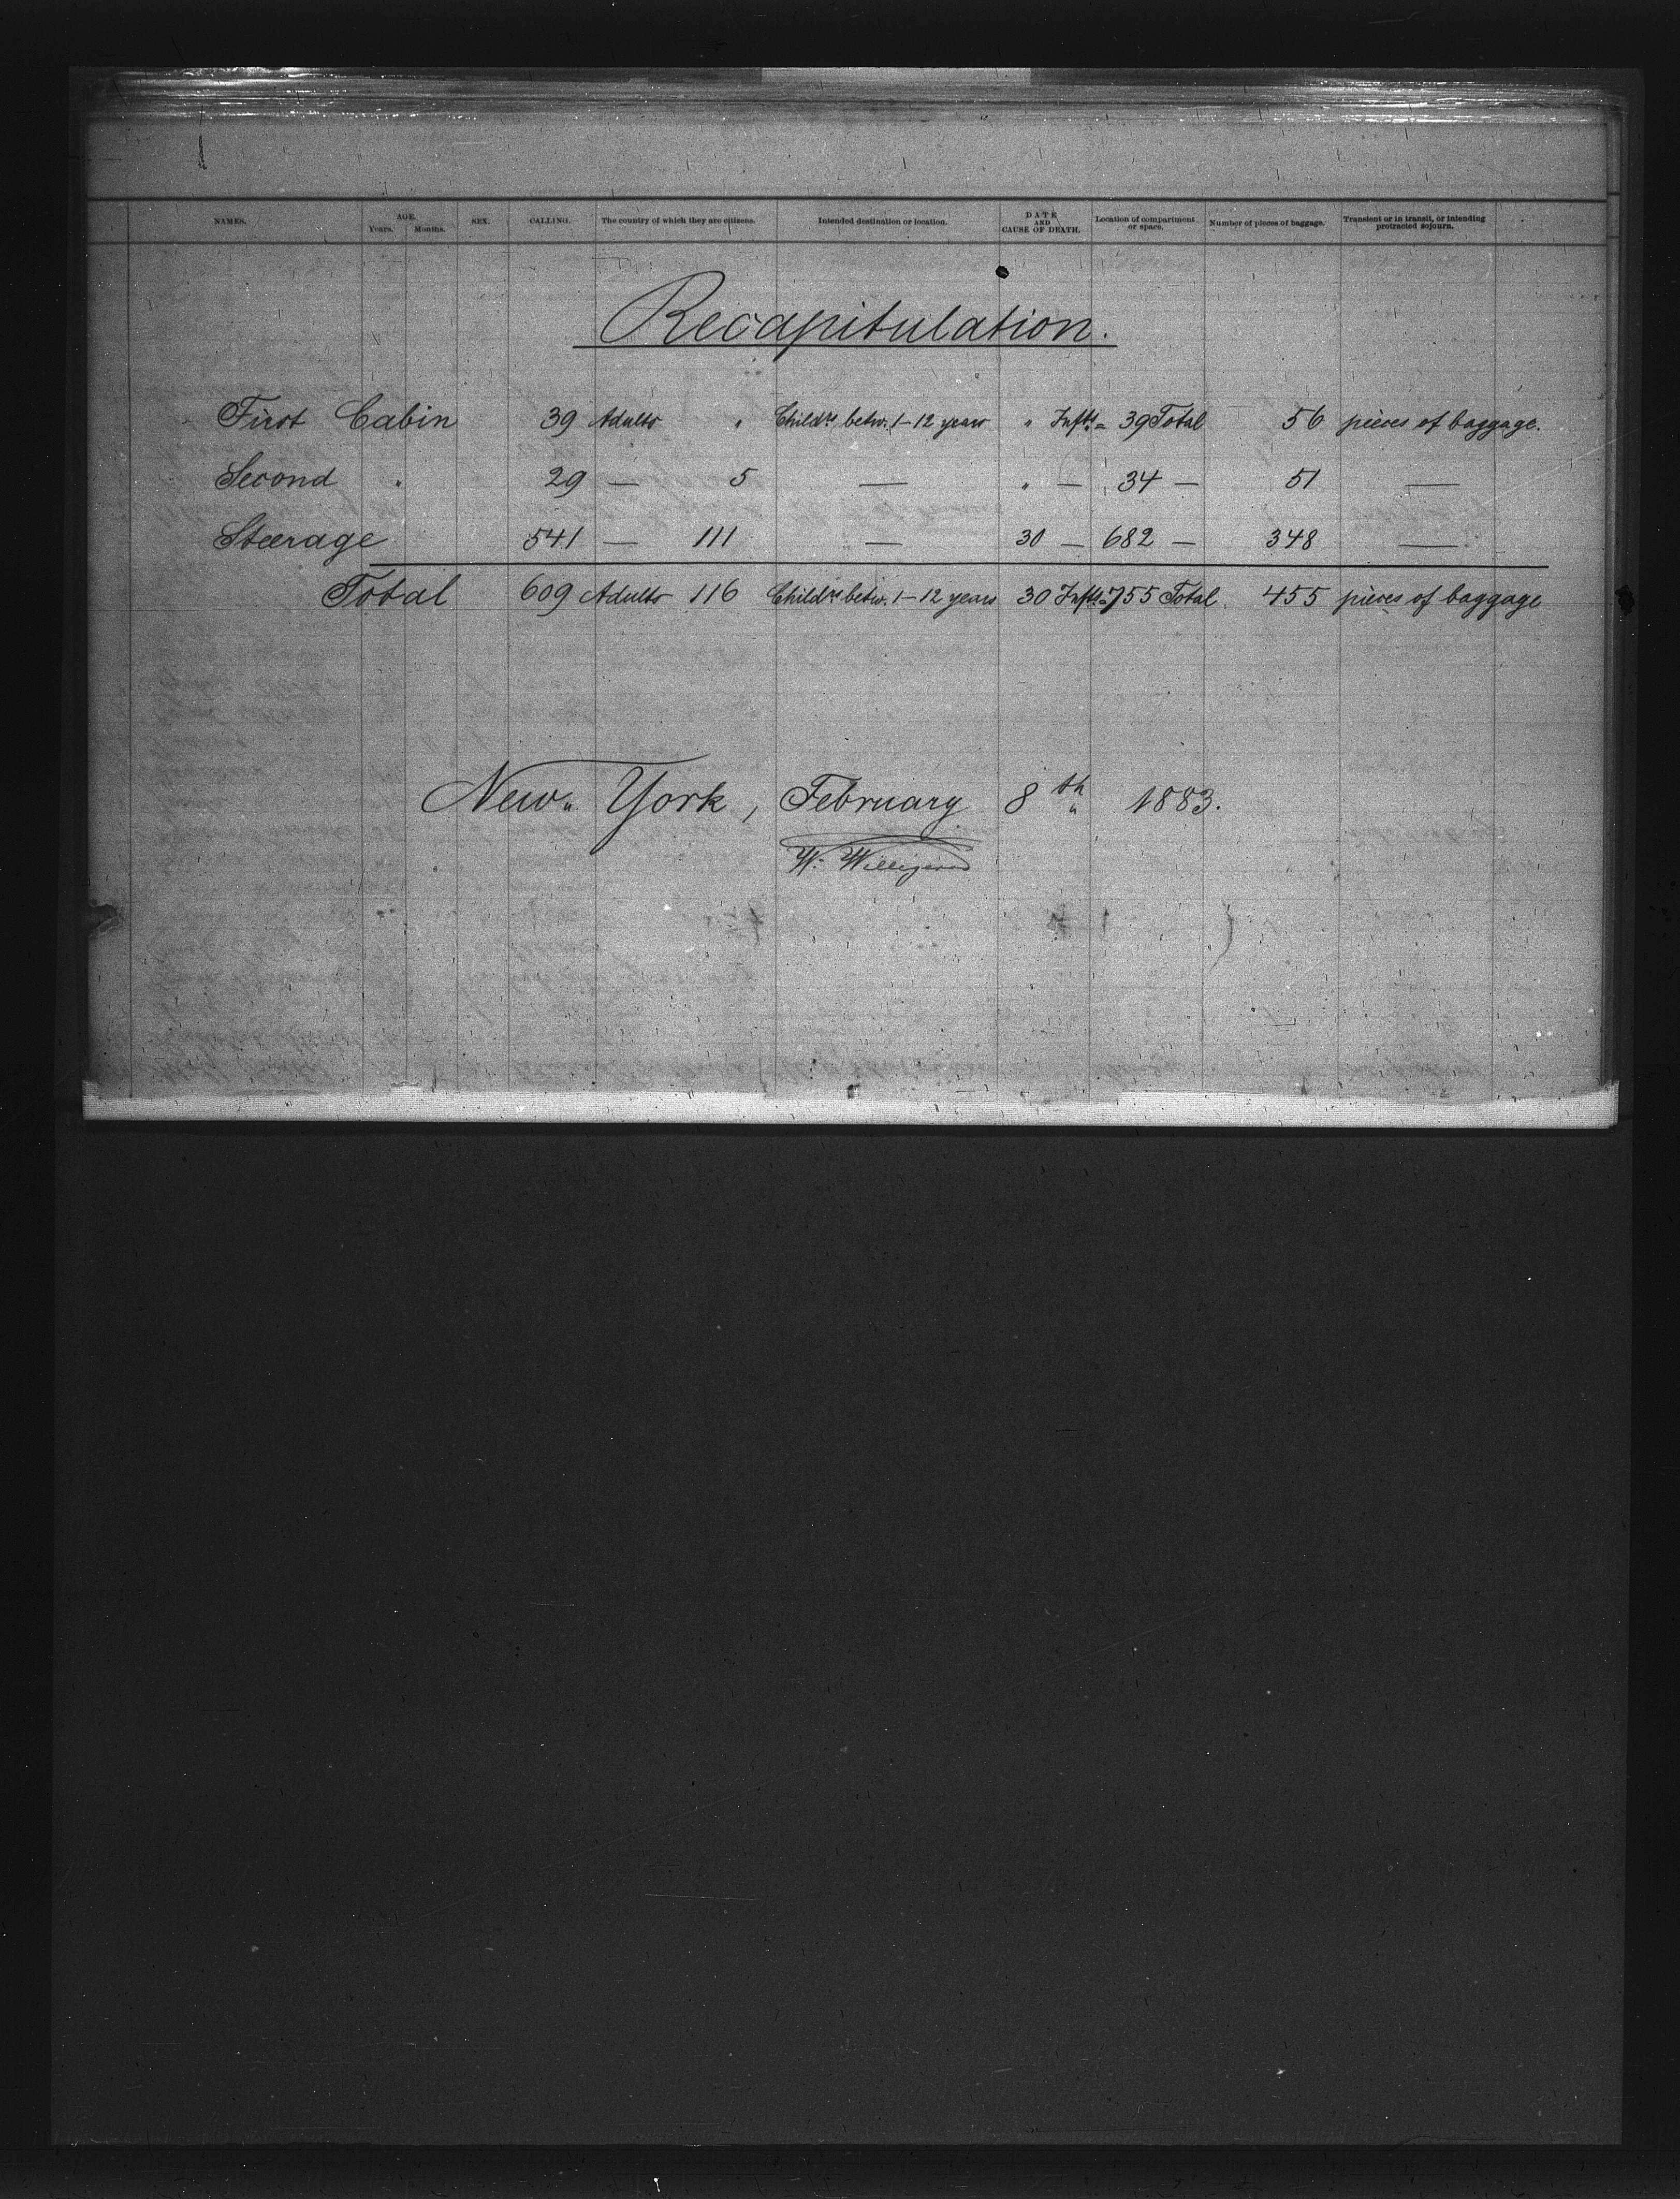 NAMES. AGE. Years. Months. SEX. CALLING. The country of which they are citizens. Intended destination or location. DATE AND CAUSE OF DEATH. Location of compartment or space. Number of pieces of baggage. Transient or in transit, or intending protracted sojourn.
Recapitulation.
First Cabin 39 Adults " Childrs betw. 1-12 years " Infts. = 39 Total 56 pieces of baggage.
Second " 29 — 5 — " — 34 — 51 —
Steerage 541 — 111 — 30 — 682 — 348 —
Total 609 Adults 116 Childrs betw. 1-12 years 30 Infts. = 755 Total. 455 pieces of baggage
New York, February 8th 1883.
W. Willigerod